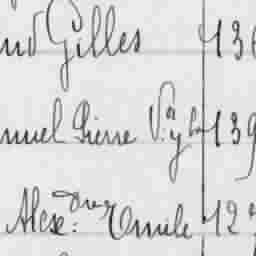 und Gilles 136
nuel Pierre 139
Alex.dre Emile 12